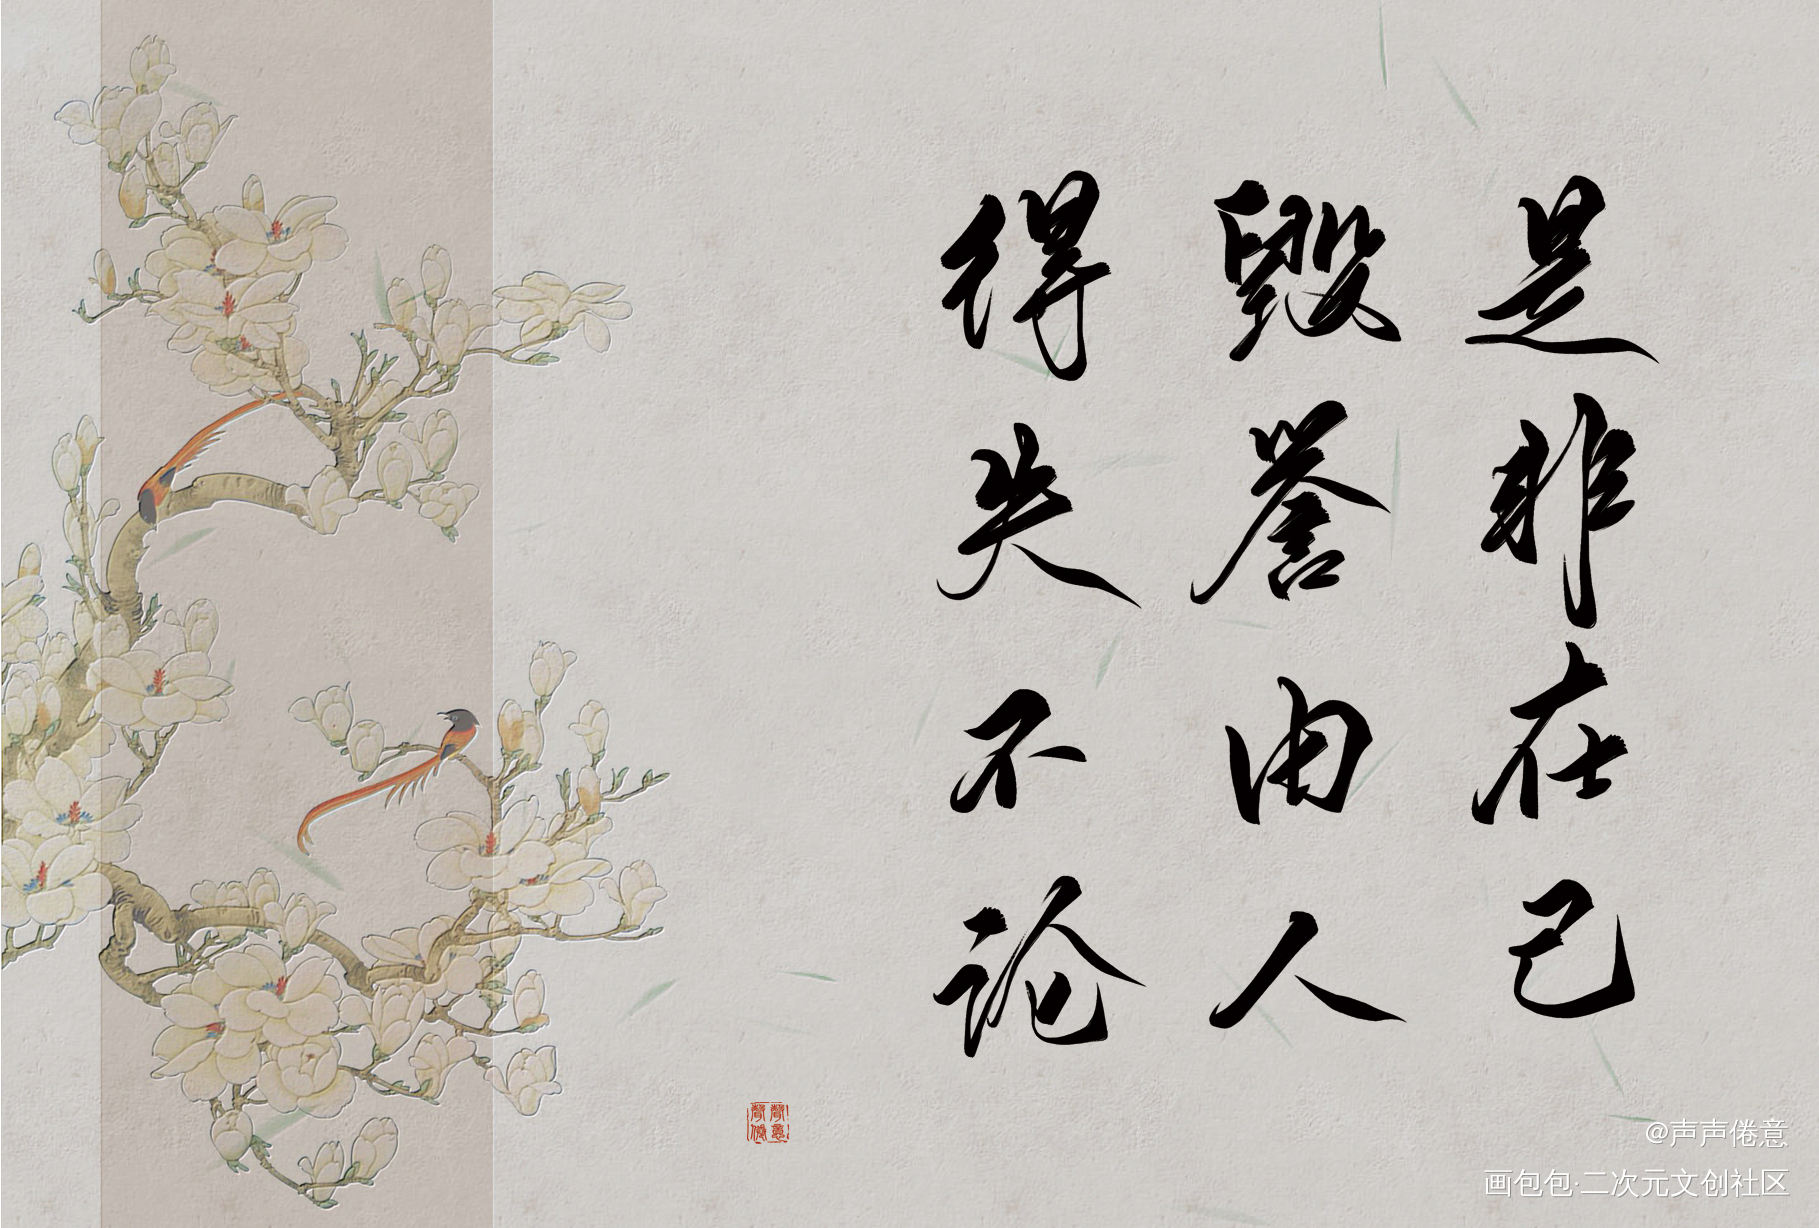 是非在己
毁誉由人
得失不论
聲意
聲倦
@声声倦意
画包包·二次元文创社区